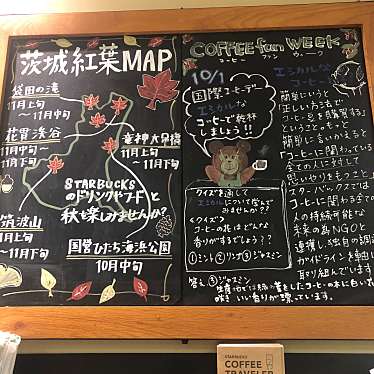 茨城紅葉MAP
袋田の滝
11月上旬
〜11月中旬
花貫渓谷
11月中旬〜
11月下旬
竜神大吊橋
11月上旬
〜11月下旬
STARBUCKS
のドリンクやフードと
秋を楽しみませんか?
筑波山
11月上旬
〜11月下旬
国営ひたち海浜公園
10月中旬
COFFEE fun WEEK
コーヒー ファン ウィーク
10/1
国際コーヒーデー
エシカルな
コーヒーで乾杯
しましょう!!
クイズを通して
エシカルについて学んで
みませんか??
<クイズ>
コーヒーの花はどんな
香りがするでしょう??
①ミント ②リンゴ ③ジャスミン
答え ③ジャスミン
咲き いい香りが漂っています。
エシカルな
コーヒー
簡単にいうと
正しい方法で
コーヒー豆を購買する
ということ。もっと
簡単に言いかえると
「コーヒーに関わっている
全ての人に対して
思いやりをもつこと」
スターバックスでは
コーヒーに関わる全ての
人の持続可能な
未来の為NGOと
連携し、独自の調達
ガイドラインを軸に
取り組んでいます
STARBUCKS
COFFEE
TRAVELER